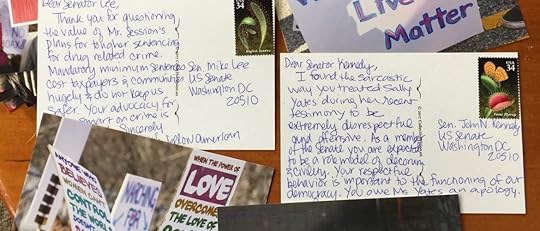 Dear Senator Lee,
Thank you for questioning
the value of Mr. Session's
plans for tougher sentencing
for drug related crime.
Mandatory minimum sentences
cost taxpayers & communities
hugely & do not keep us
safer. Your advocacy for
smart on crime is
Sincerely
fellow american
Sen. Mike Lee
US Senate
Washington DC
20510
USA
34
Live
Matter
Dear Senator Kennedy,
I found the sarcastic
way you treated Sally
Yates during her recent
testimony to be
extremely disrespectful
and offensive. As a member
of the Senate you are expected
to be a role model of decorum
& civility. Your respectful
behavior is important to the functioning of our
democracy. You owe Ms Yates an apology.
Sen. John N Kennedy
US Senate
Washington DC
20510
USA
34
BELIEVES
CONTROL
THE WORLD
MARCHING
FOR
WHEN THE POWER OF
LOVE
OVERCOMES
THE LOVE OF